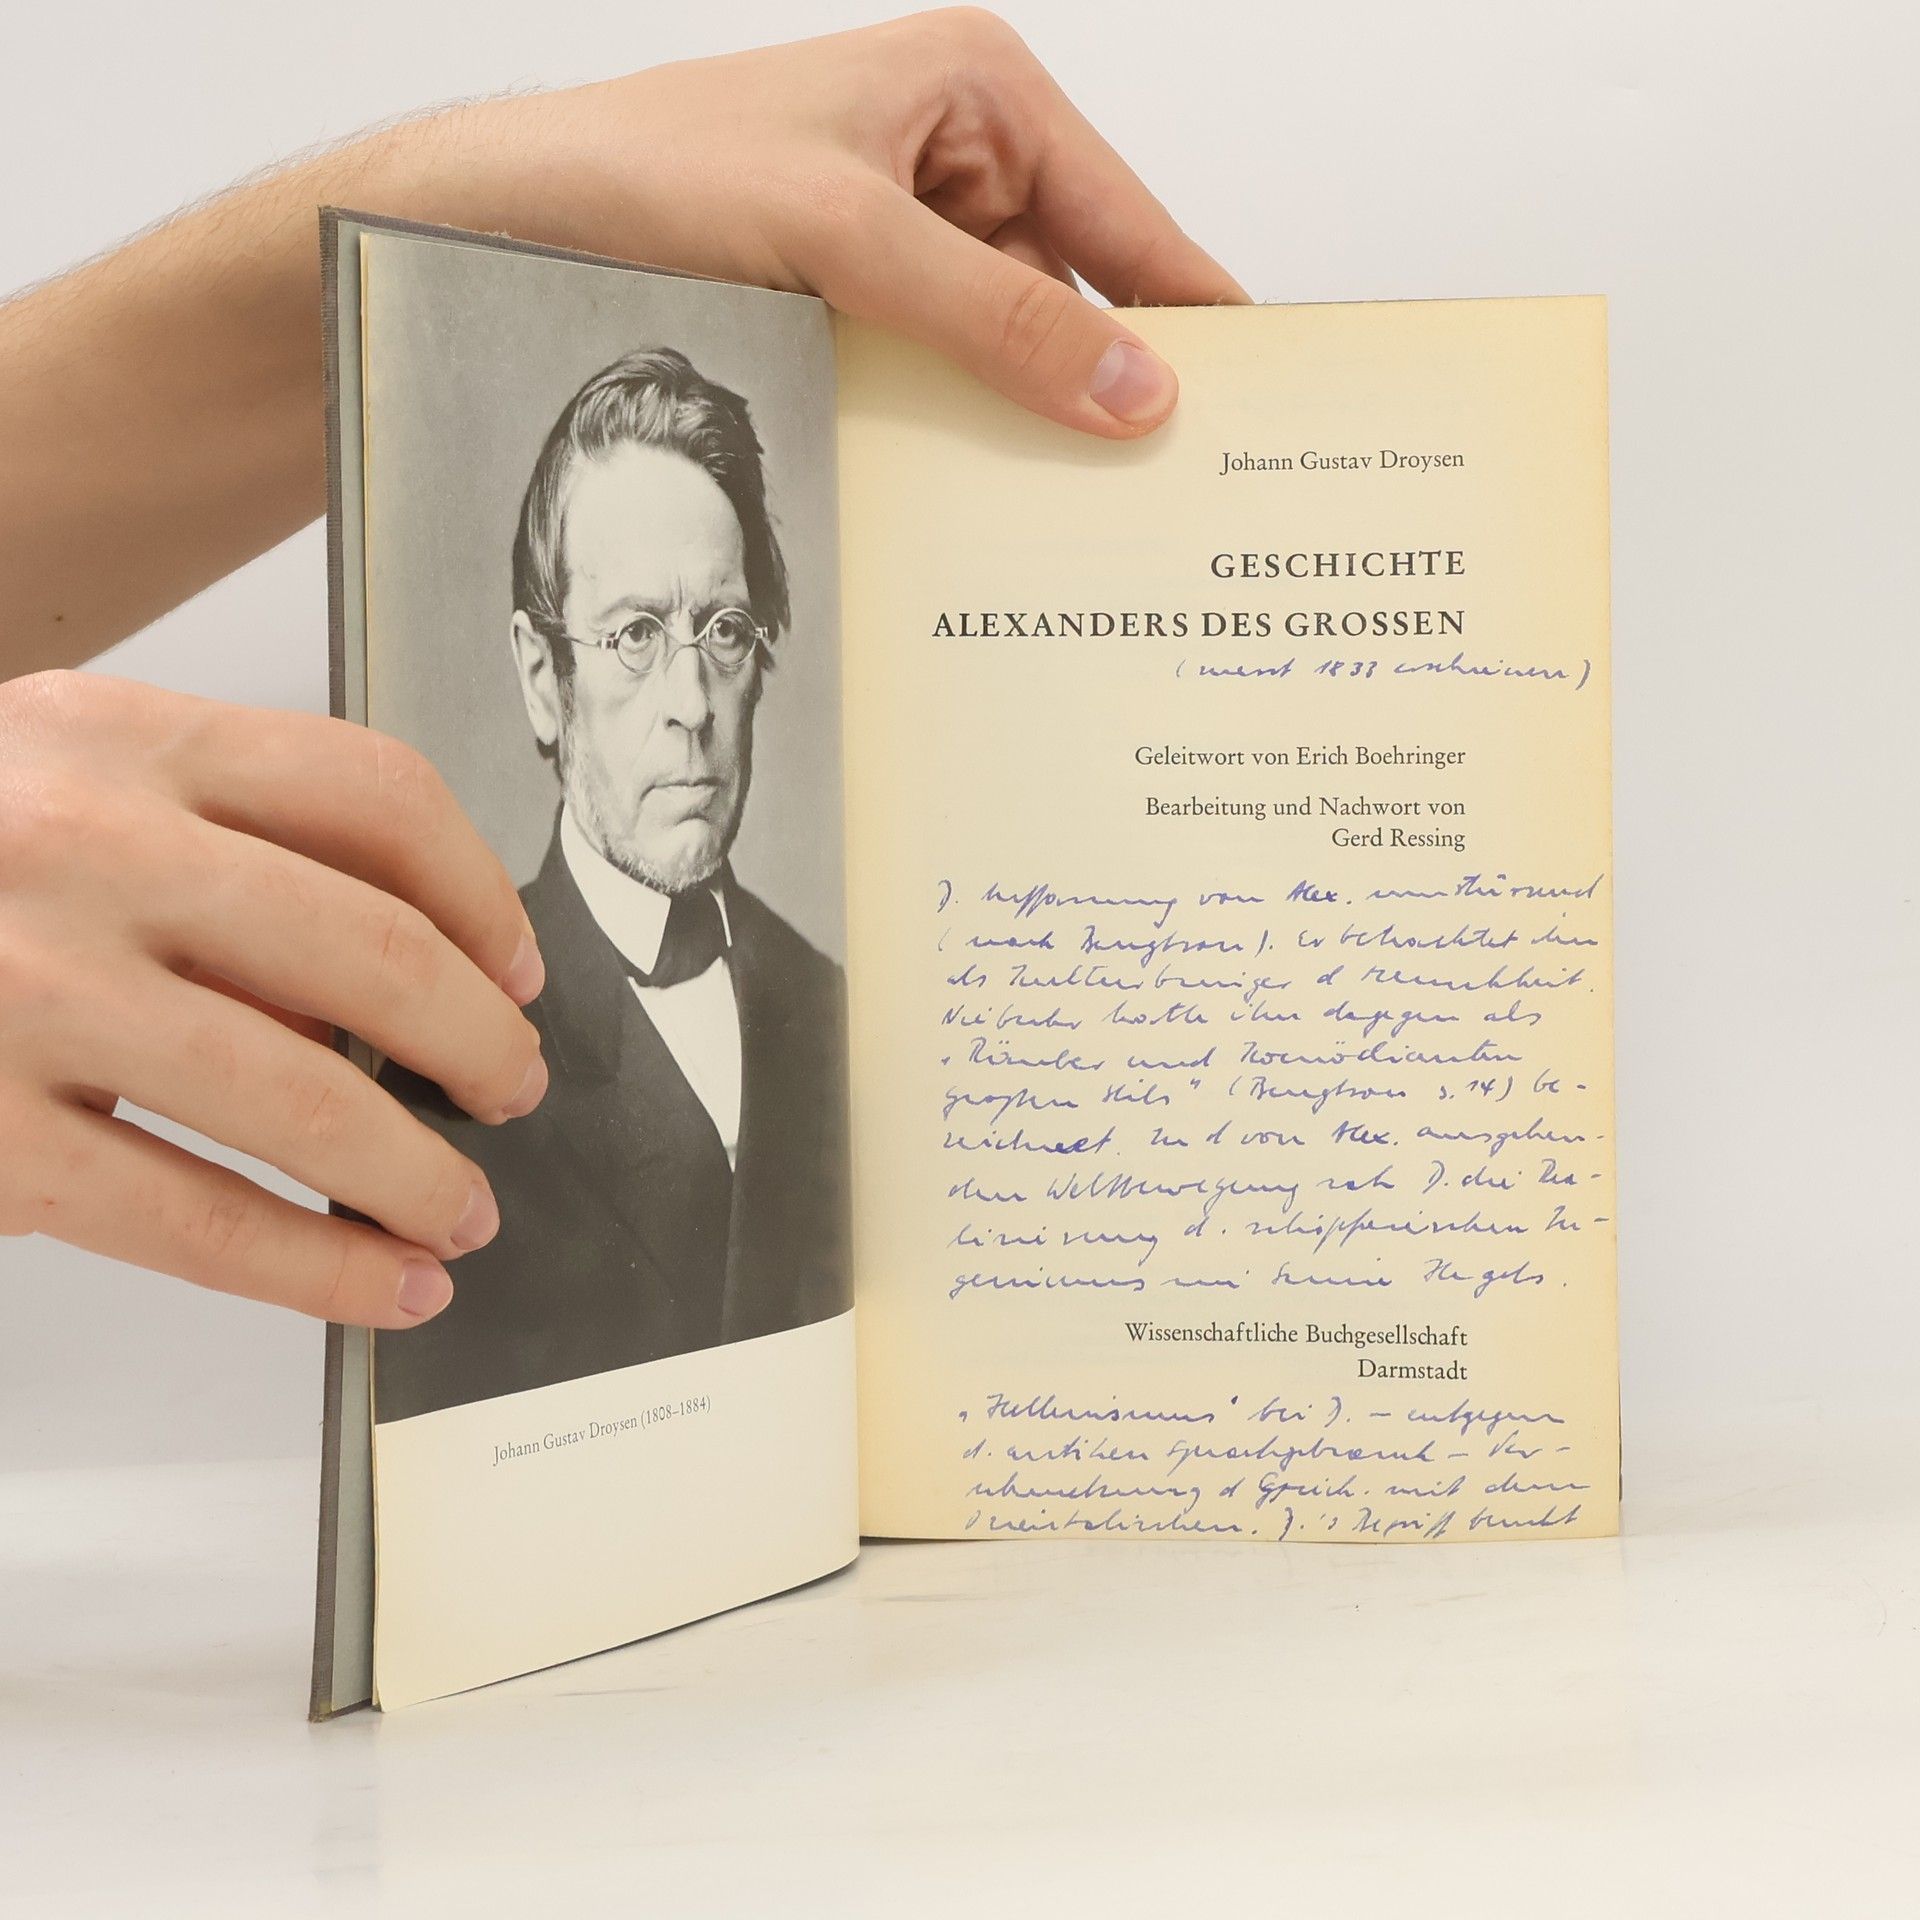 Johann Gustav Droysen (1808–1884)
Johann Gustav Droysen
GESCHICHTE
ALEXANDERS DES GROSSEN
( 1833 erschienen)
Geleitwort von Erich Boehringer
Bearbeitung und Nachwort von
Gerd Ressing
D. Auffassung von Alex. umstürzend
(nach Bengtson). Er betrachtet ihn
als Kulturbringer d Menschheit.
Niebuhr hatte ihn dagegen als
„Räuber und Komödianten
großen Stils" (Bengtson S. 14) be-
zeichnet. In d von Alex. ausgehen-
den Weltbewegung sah D. die Rea-
lisierung d. schöpferischen In-
geniums im Sinne Hegels.
Wissenschaftliche Buchgesellschaft
Darmstadt
„Hellenismus" bei D. – entgegen
d. antiken Sprachgebrauch – Ver-
schmelzung d Griech. mit dem
Orientalischen. D.'s Begriff beruht